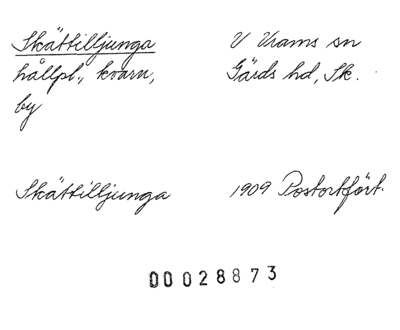 Skättilljunga V Vrams sn
hållpl., kvarn, Gärds hd, Sk.
by
Skättilljunga 1909 Postortsfört.
00028873